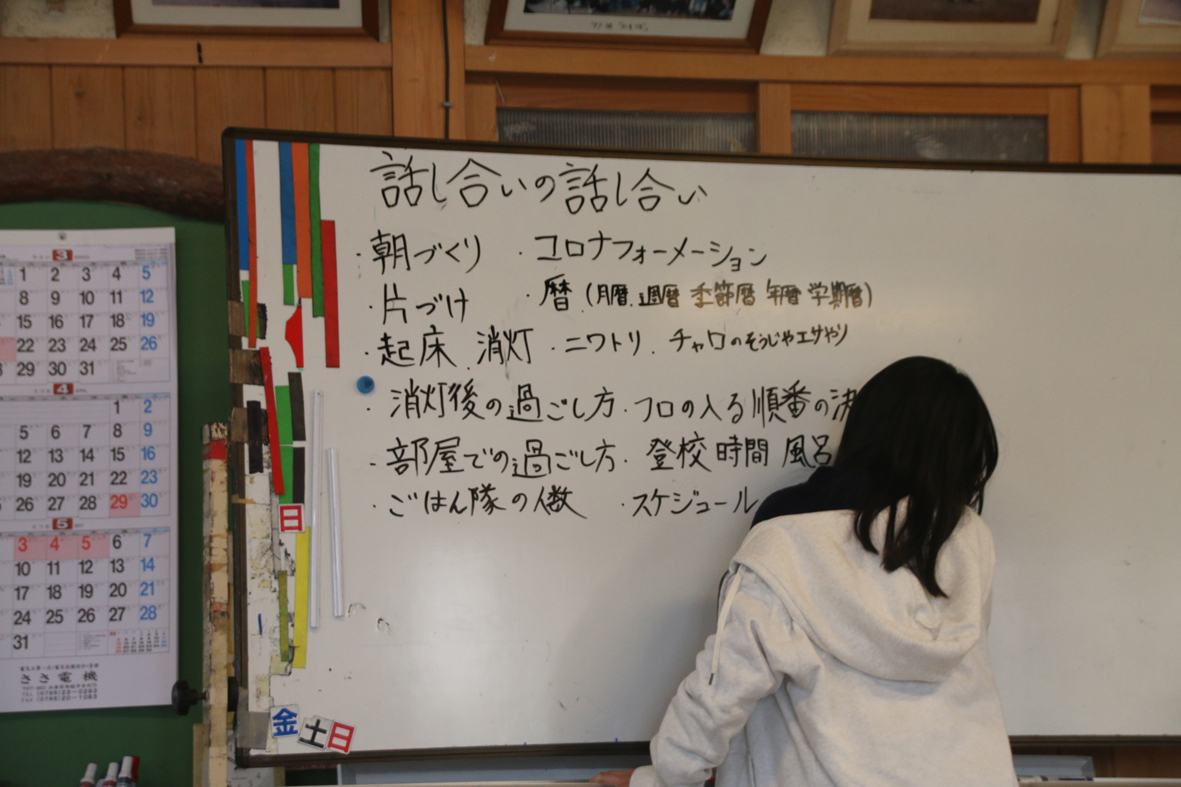 話し合いの話し合い
・朝づくり ・コロナフォーメーション
・片づけ ・暦(月暦、週暦 季節暦 年暦 学期暦)
・起床、消灯 ・ニワトリ、チャロのそうじやエサやり
・消灯後の過ごし方 ・フロの入る順番の決
・部屋での過ごし方 ・登校時間 風呂
・ごはん隊の人数 ・スケジュール
日
金 土 日
3
1 2 3 4 5
8 9 10 11 12
15 16 17 18 19
22 23 24 25 26
29 30 31
4
1 2
5 6 7 8 9
12 13 14 15 16
19 20 21 22 23
26 27 28 29 30
5
3 4 5 6 7
10 11 12 13 14
17 18 19 20 21
24 25 26 27 28
31
ささ電機